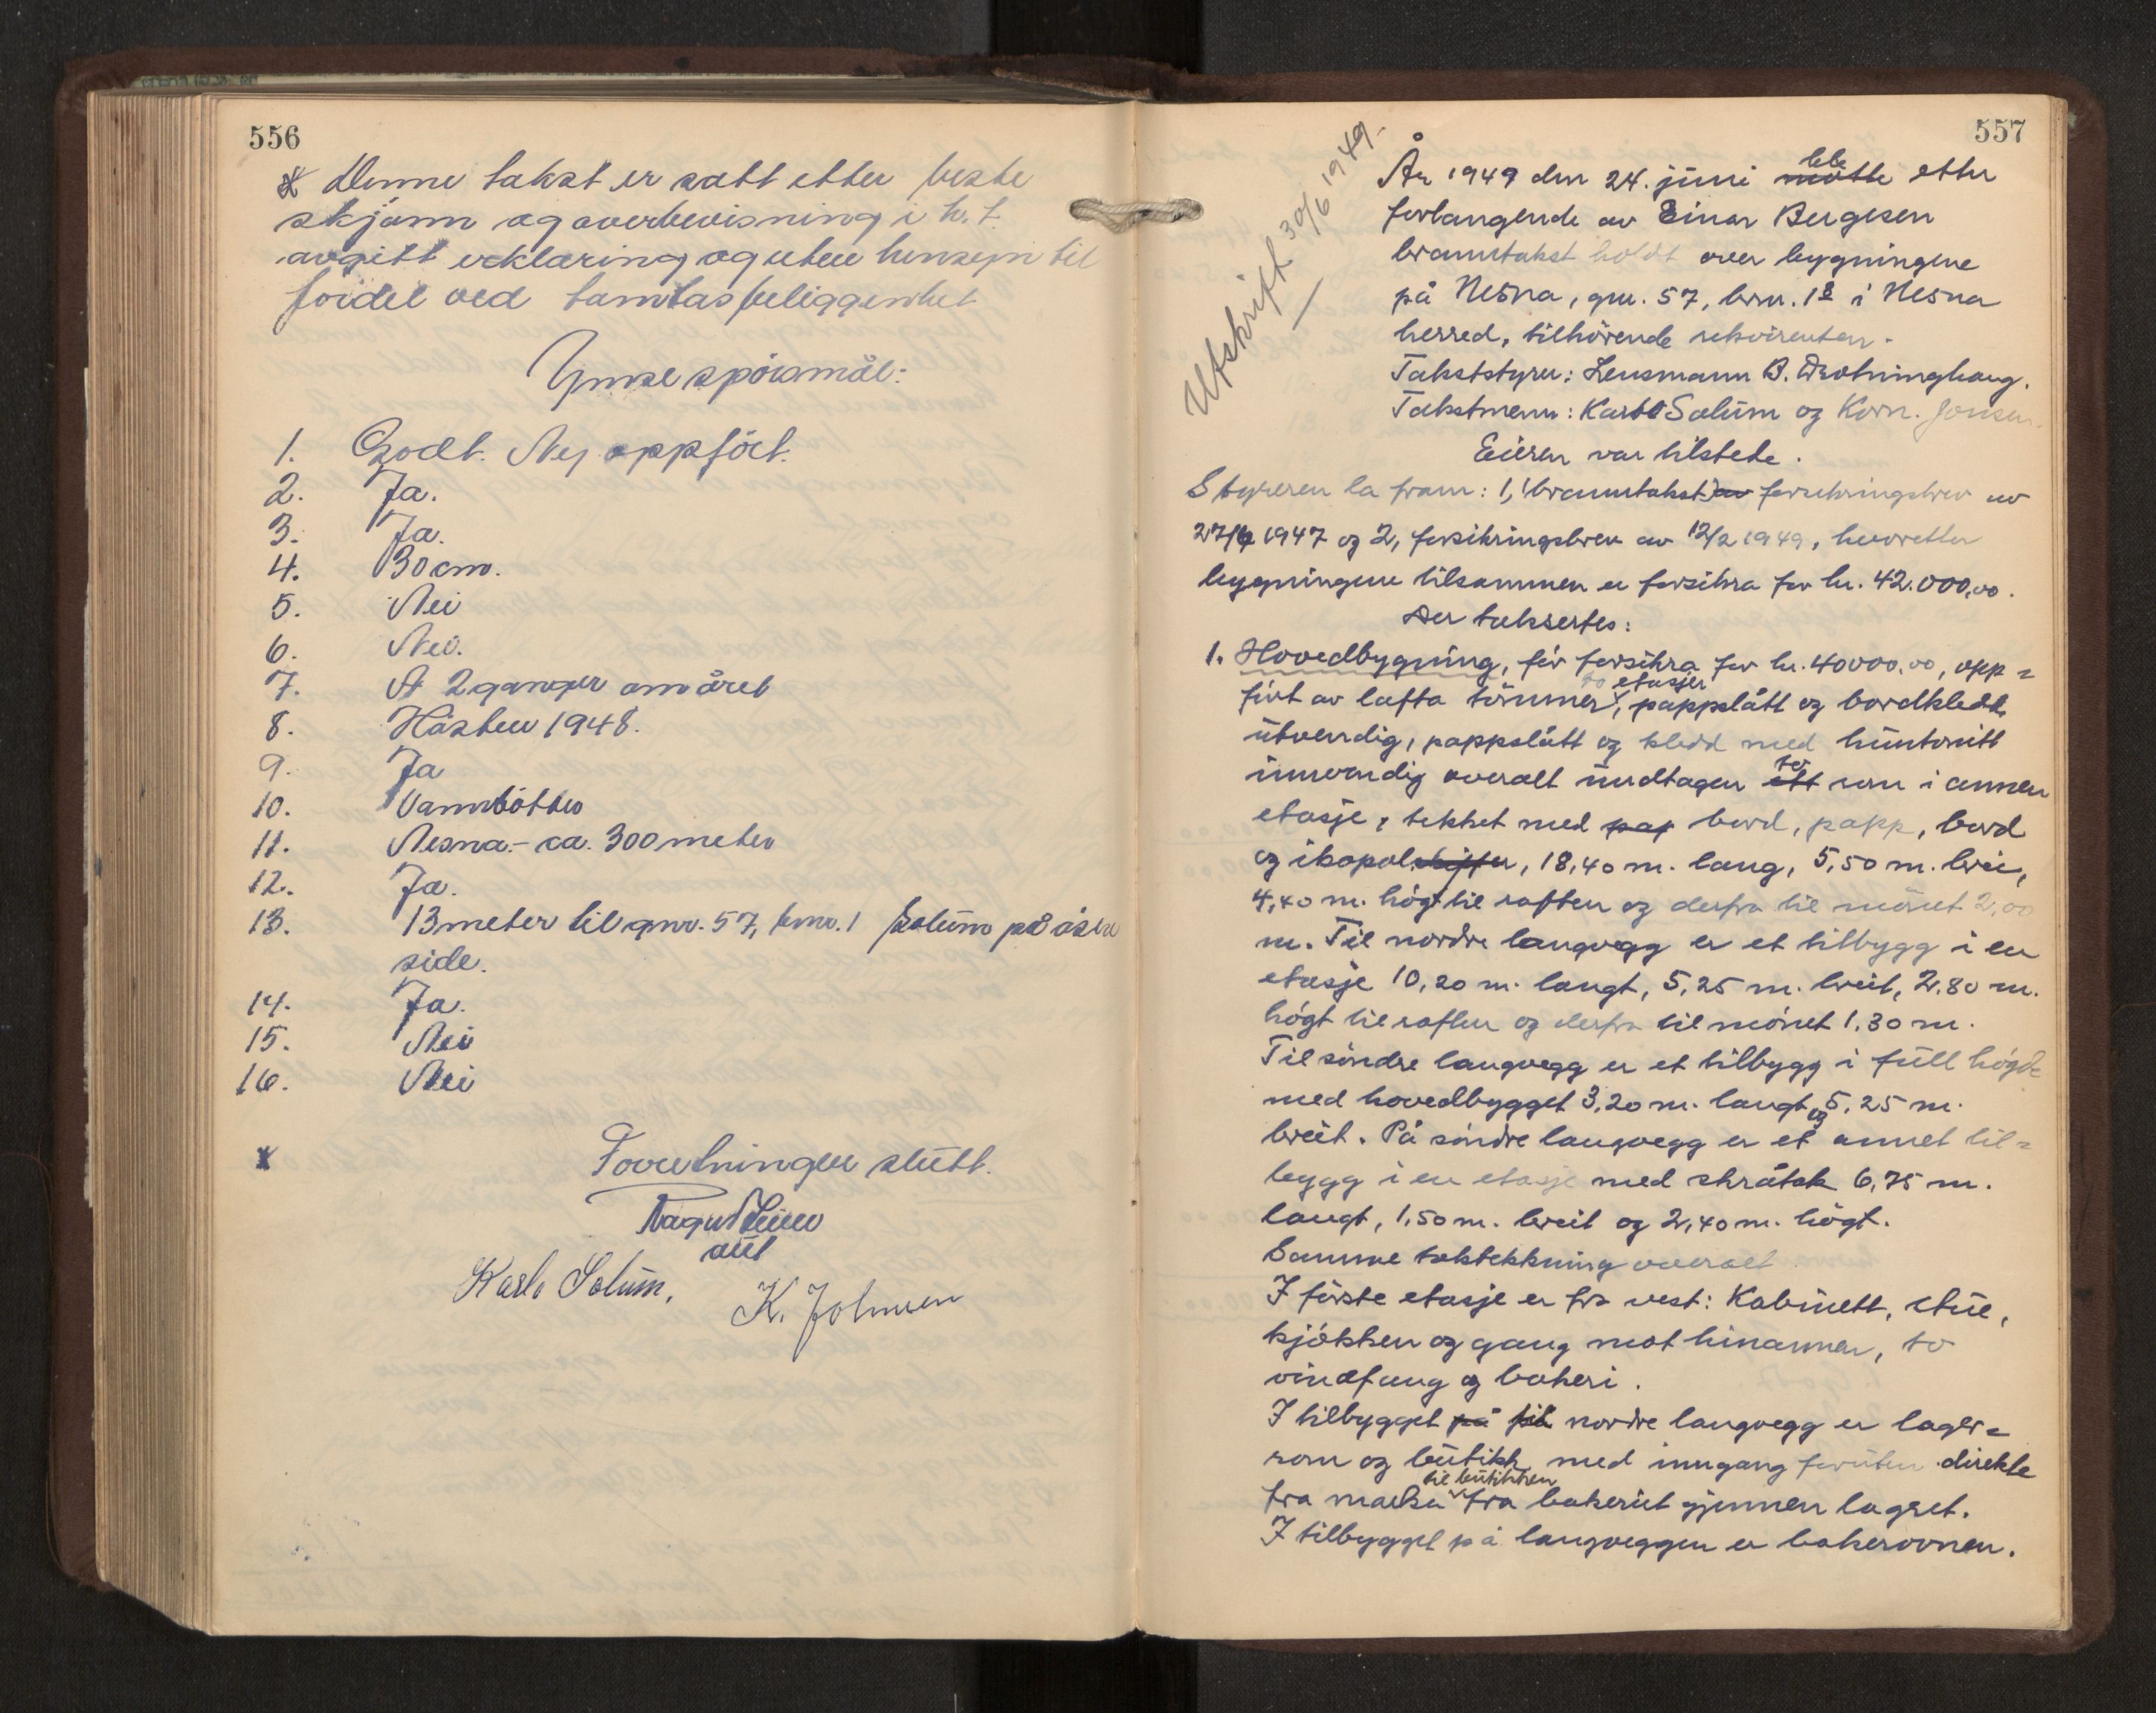 556
x Denne takst er satt etter beste
skjönn og overbevisning i h. t.
avgitt erklæring og uten hensyn til
fordel ved tomtas beliggenhet
Ymse spörsmål:
1. Godt. Ny oppfört.
2. Ja.
3. Ja.
4. 30 cm.
5. Nei
6. Nei.
7. A 2 ganger om året
8. Hösten 1948.
9. Ja
10. Vannbötter
11. Nesna.- ca. 300 meter
12. Ja.
13. 13 meter til gnr. 57, bnr. 1 Solum på östre
side.
14. Ja.
15. Nei
16. Nei
x Forretningen slutt.
aut
Karlo Solum, K. Johnsen
557
Utskrift 30/6 1949.-
År 1949 den 24. juni mötte ble etter
forlangende av Einar Bergesen
branntakst holdt over bygningene
på Nesna, gnr. 57, brnr. 18 i Nesna
herred, tilhörende rekvirenten.
Takststyrer: Lensmann B. Drotninghaug.
Takstmenn: Karlo Solum og Korn. Jonsen.
Eieren var tilstede.
Styreren la fram: 1, (branntakst) av forsikringsbrev av
27/6 1947 og 2, forsikringsbrev av 12/2 1949, hvoretter
bygningene tilsammen er forsikra for kr. 42.000,00.
Der taksertes:
1. Hovedbygning, för forsikra for kr. 40000.00, opp=
fört av lafta tömmer, to etasjer, pappslått og bordkledt
utvendig, pappslått og kledd med huntonitt
innvendig overalt undtagen ett to rom i annen
etasje, tekket med pap bord, papp, bord
og ikopalskiffer, 18,40 m. lang, 5,50 m. brei,
4,40 m. högt til raften og derfra til mönet 2,00
m. Til nordre langvegg er et tilbygg i en
etasje 10,20 m. langt, 5,25 m. breit, 2.80 m.
högt til raften og derfra til mönet 1.30 m.
Til söndre langvegg er et tilbygg i full högde
med hovedbygget 3,20 m. langt og 5,25 m.
breit. På söndre langvegg er et annet til=
bygg i en etasje med skråtak 6,75 m.
langt, 1,50 m. breit og 2,40 m. högt.
Samme taktekkning overalt.
I förste etasje er fra vest: Kabinett, stue,
kjökken og gang mot hinannen, to
vindfang og bakeri.
I tilbygget på til nordre langvegg er lager=
rom og butikk med inngang foruten direkte
fra marka til butikken fra bakeriet gjennem lagret.
I tilbygget på langveggen er bakerovnen.